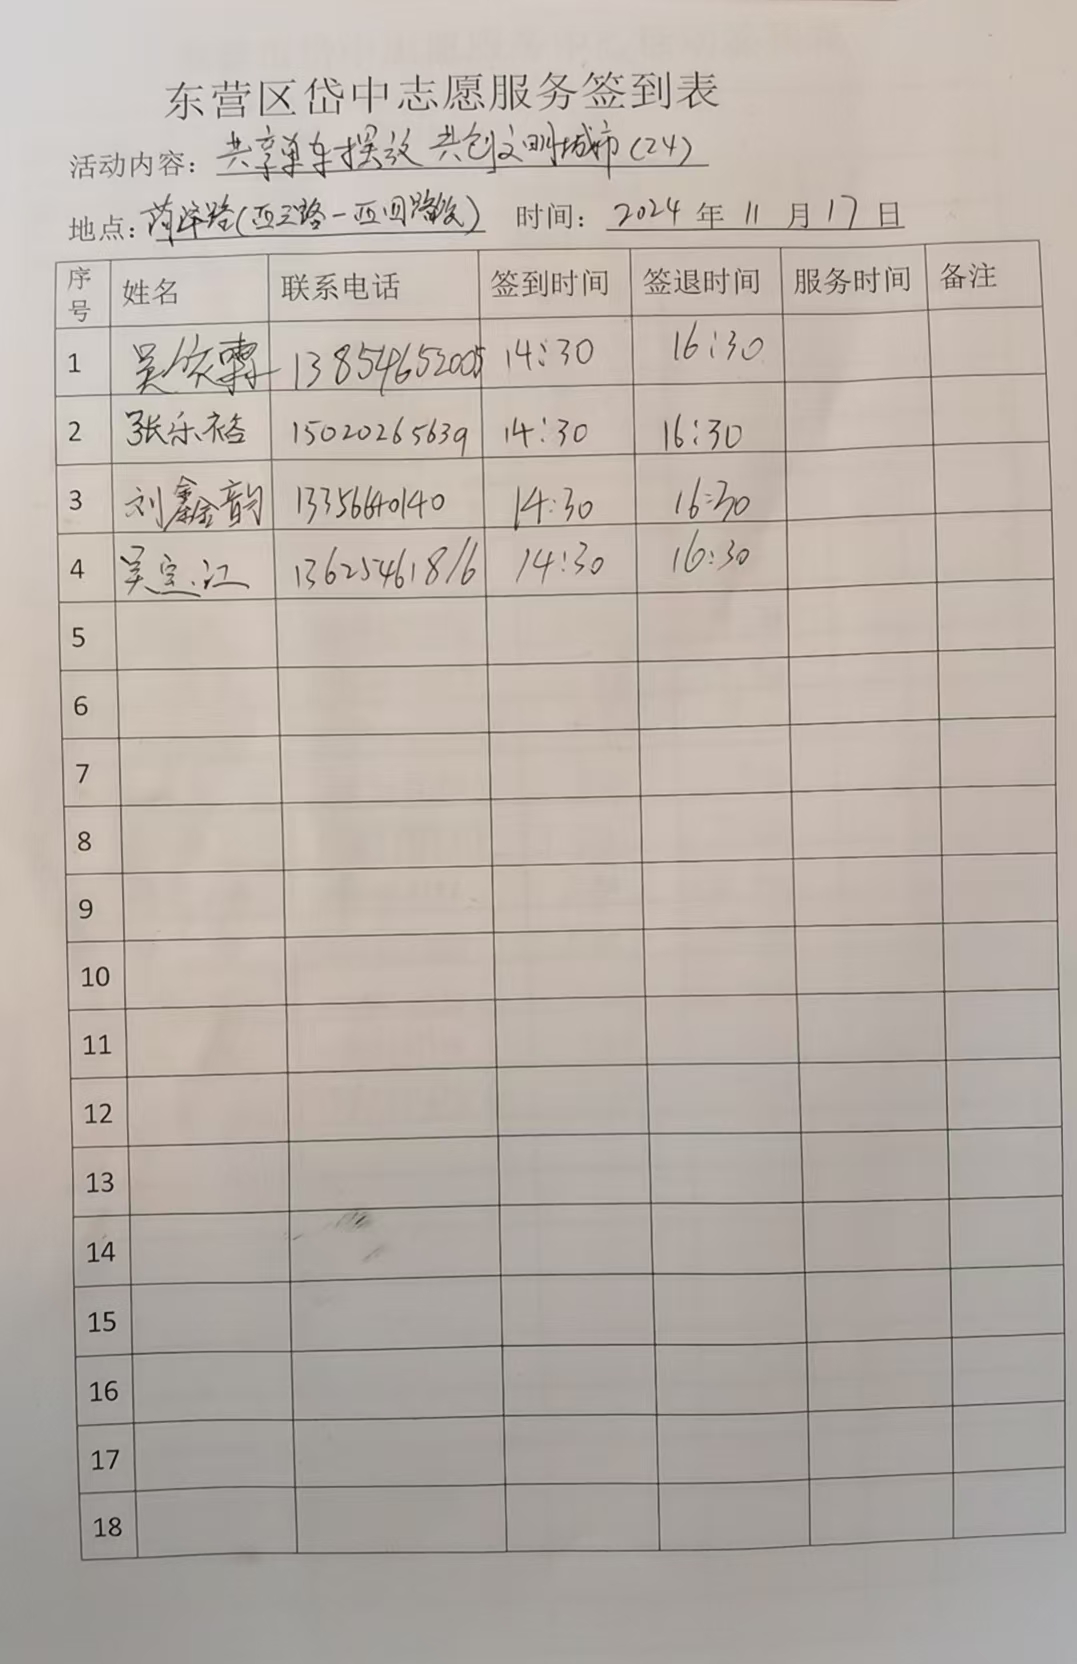 东营区岱中志愿服务签到表
活动内容：共享单车摆放 共创文明城市（24）
地点：菏泽路（西三路－西四路段） 时间：2024年11月17日
序号 姓名 联系电话 签到时间 签退时间 服务时间 备注
1 吴 13854652005 14:30 16:30
2 张乐裕 15020265639 14:30 16:30
3 刘鑫韵 1335640140 14:30 16:30
4 吴宝江 13625461816 14:30 16:30
5
6
7
8
9
10
11
12
13
14
15
16
17
18